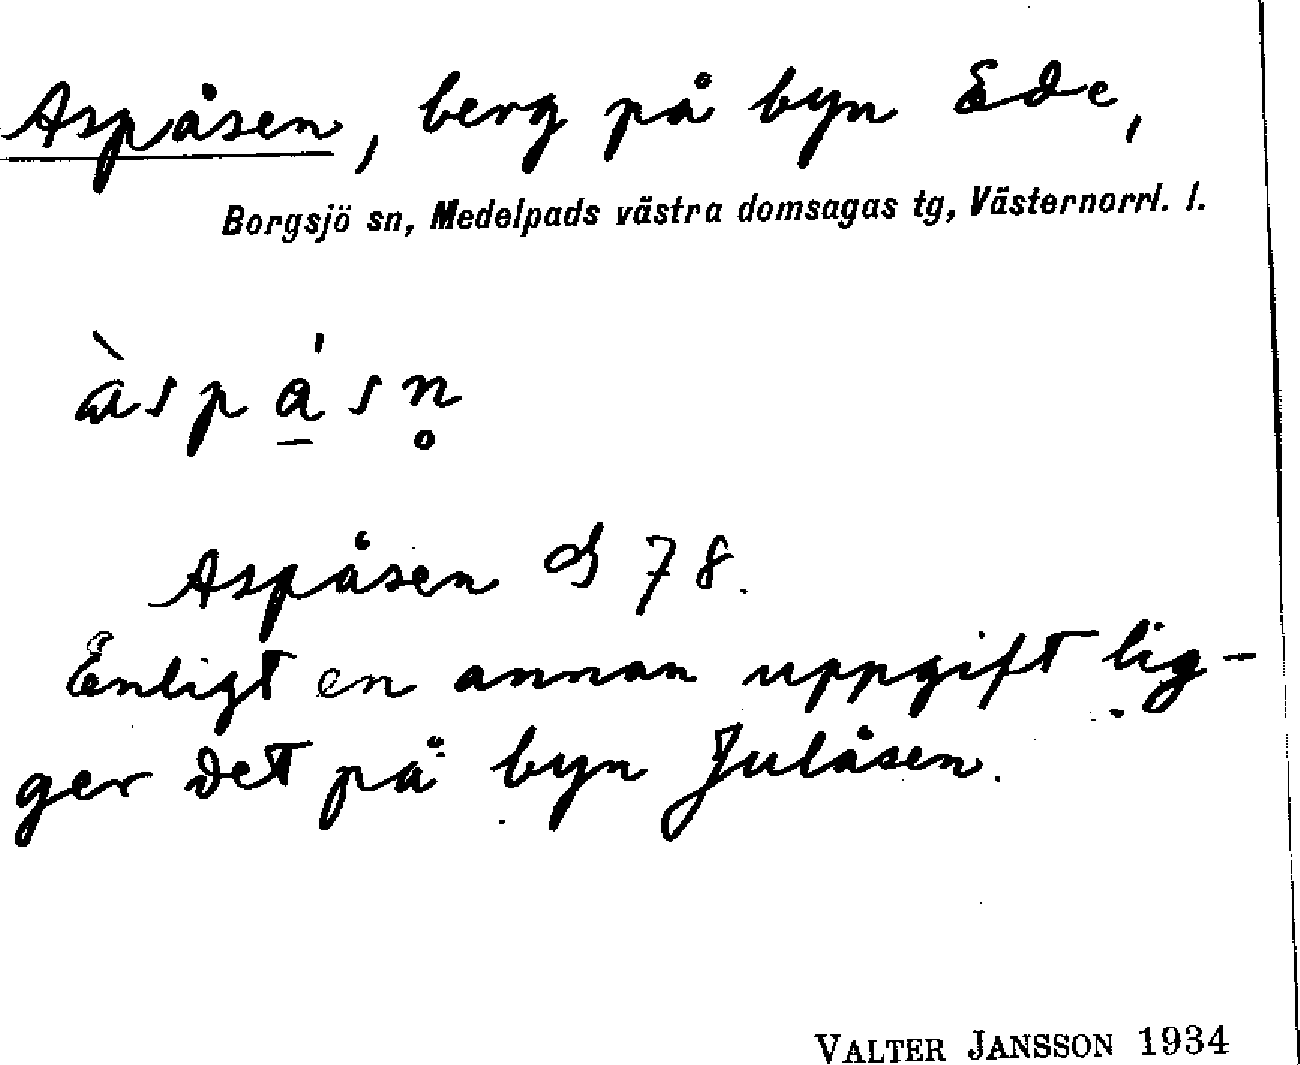 Aspåsen, berg på byn Ede,
Borgsjö sn, Medelpads västra domsagas tg, Västernorrl. l.
Aspåsen 78.
Enligt en annan uppgift lig-
ger det på byn Julåsen.
VALTER JANSSON 1934